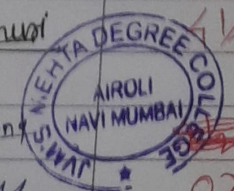 JVM'S MEHTA DEGREE COLLEGE
AIROLI
NAVI MUMBAI